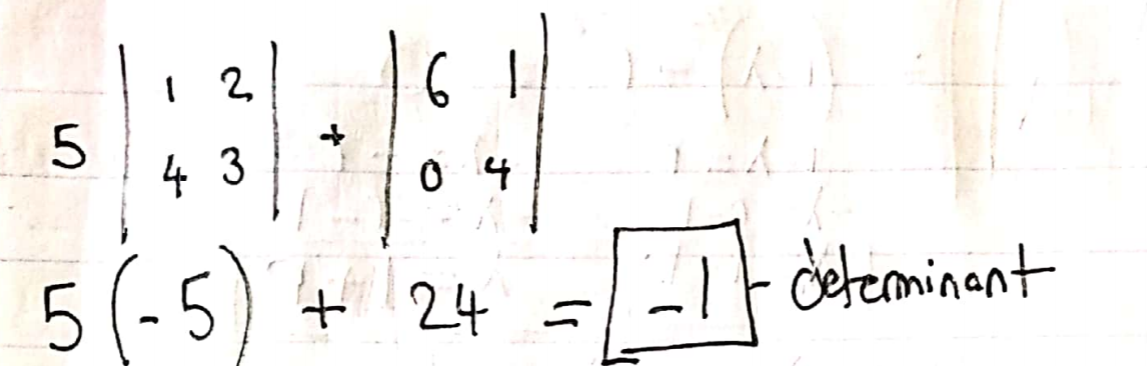 5 | 1 2 | + | 6 1 |
| 4 3 | | 0 4 |
5 (-5) + 24 = -1 - determinant